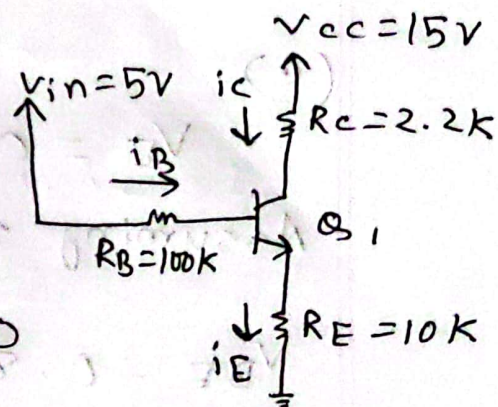 Vcc=15V
Vin=5V
ic
Rc=2.2K
iB
Q1
RB=100K
RE=10K
iE